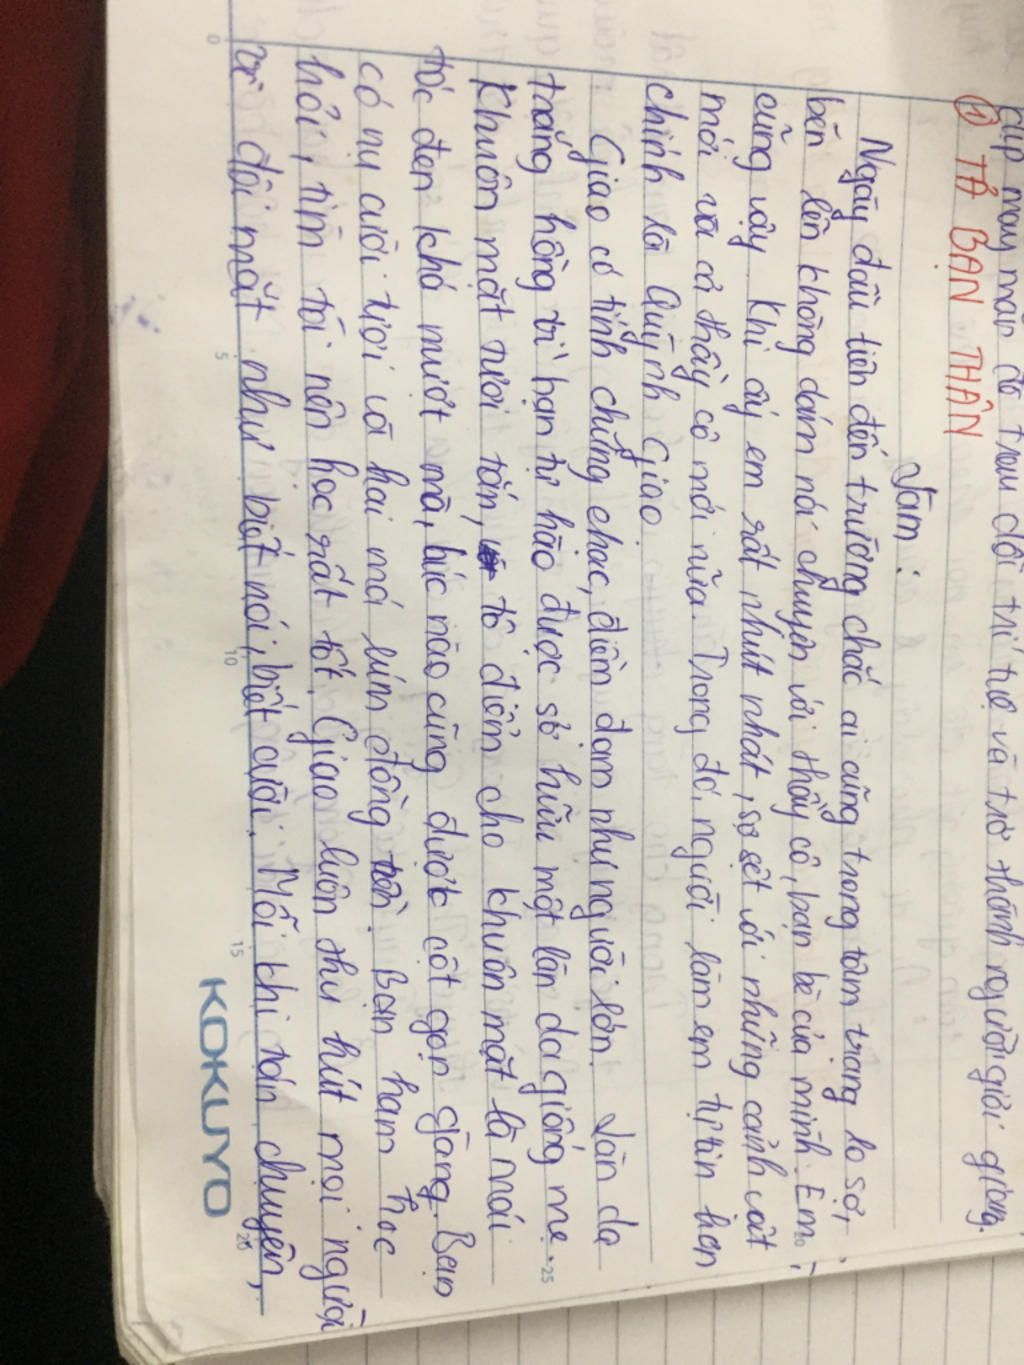 giúp may mắn để trau dồi trí tuệ và trở thành người giỏi giang.
① TẢ BẠN THÂN
Làm :
Ngày đầu tiên đến trường chắc ai cũng trong tâm trạng lo sợ,
bẽn lẽn không dám nói chuyện với thầy cô, bạn bè của mình. Em
cũng vậy. Khi ấy em rất nhút nhát, sợ sệt với những cảnh vật
mới và cả thầy cô mới nữa. Trong đó, người làm em tự tin hơn
chính là Quỳnh Giao.
Giao có tính chững chạc, điềm đạm như người lớn. Làn da
trắng hồng vì bạn tự hào được sở hữu một làn da giống mẹ.
Khuôn mặt tươi tắn, tô điểm cho khuôn mặt là mái
tóc đen khá mượt mà, lúc nào cũng được cột gọn gàng. Bạn
có nụ cười tươi và hai má lúm đồng tiền. Bạn ham học
hỏi, tìm tòi nên học rất tốt. Giao luôn thu hút mọi người
vì đôi mắt như biết nói, biết cười. Mỗi khi tán chuyện,
0
5
10
15
20
25
30
KOKUYO